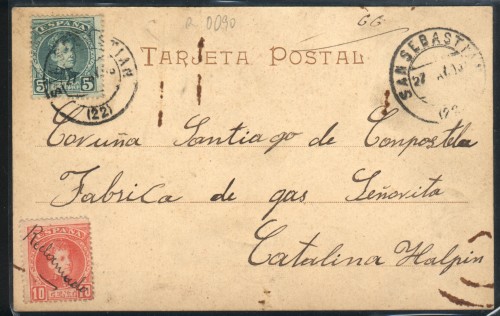 R 0090
GG
ESPAÑA
5 5
(22)
TARJETA POSTAL
SAN SEBASTIAN
27
(22)
Coruña Santiago de Conpostela
Fabrica de gas Señorita
Catalina Halpin
ESPAÑA
Reclamada
10 10